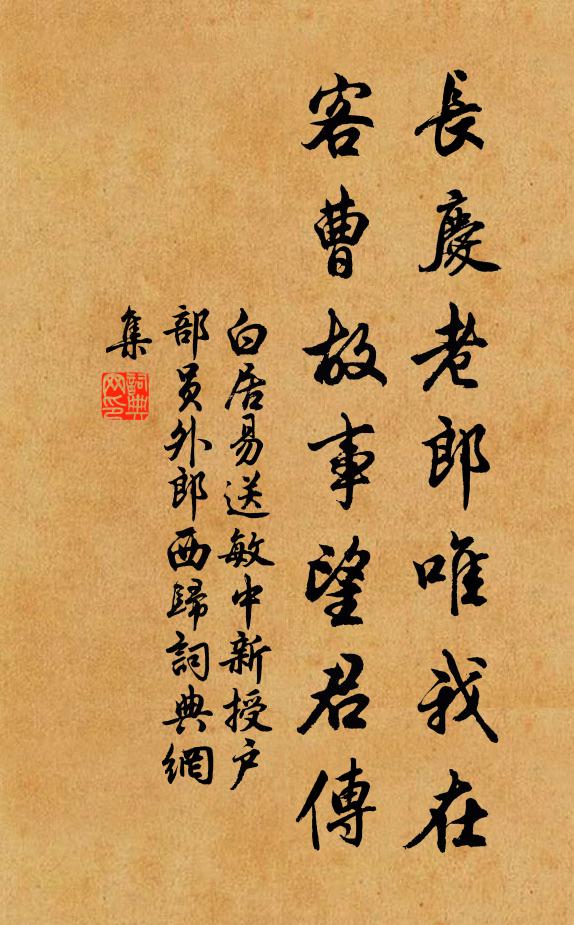 長慶老郎唯我在
客曹故事望君傳
白居易送敏中新授户
部員外郎西歸詞典網
集
詞典網印